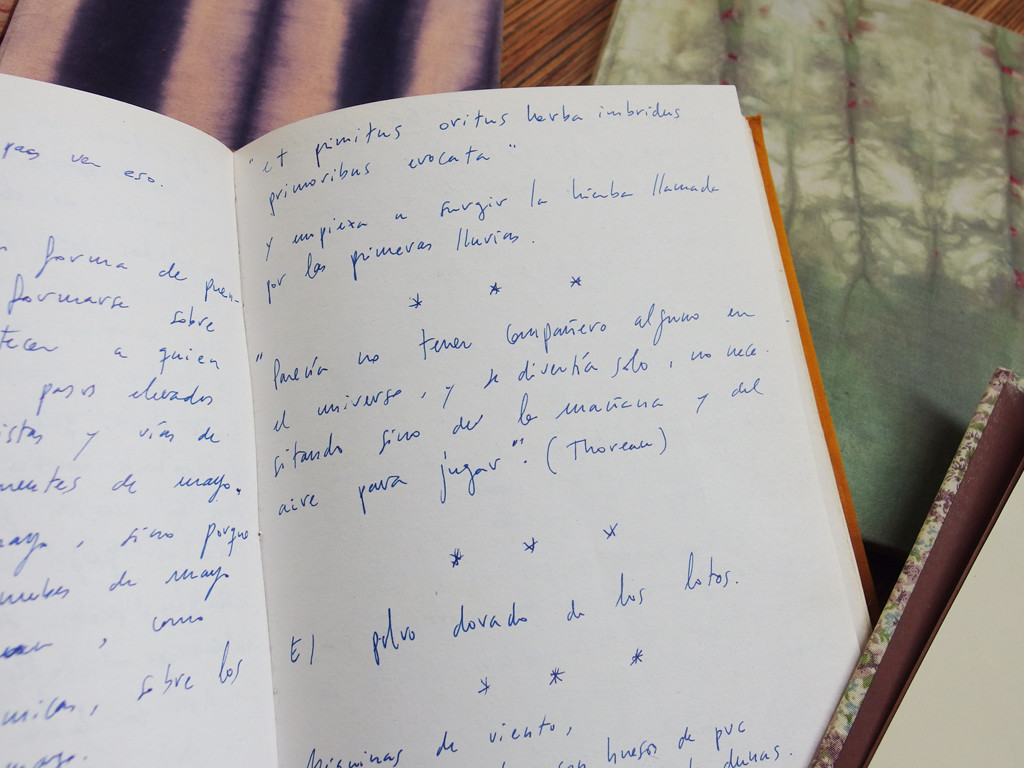 pues ven eso.
forma de puen-
formarse sobre
a quien
pasos elevados
y vías de
de mayo.
, sino porque
de mayo
, como
, sobre los
"et pimitus oritus herba imbridus
primoribus evocata"
y empieza a surgir la hierba llamada
por las primeras lluvias.
* * *
"Parecía no tener compañero alguno en
el universo, y se divertía solo, no nece-
sitando sino de la mañana y del
aire para jugar". (Thoreau)
* * *
El polvo dorado de los lotos.
* * *
Máquinas de viento,
con huesos de pvc
dunas.